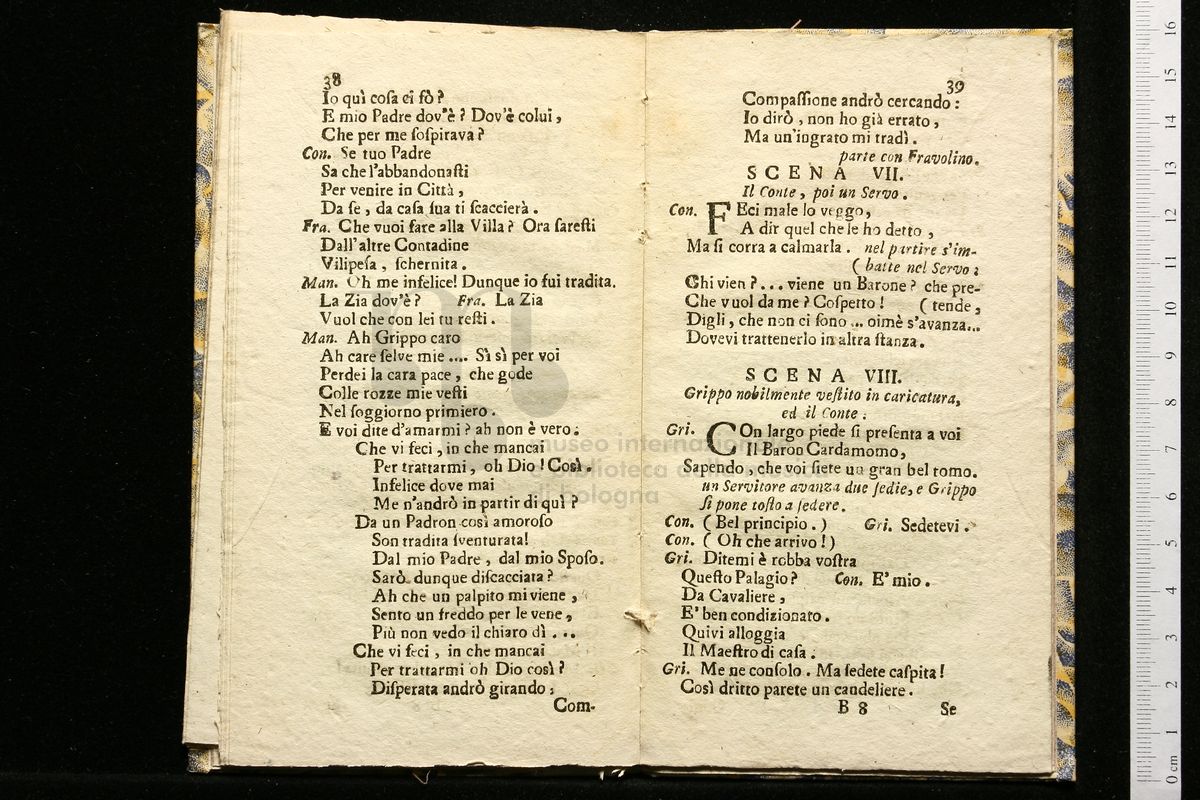 38
Io quì coſa ci fò?
E mio Padre dov'è? Dov'è colui,
Che per me ſoſpirava?
Con. Se tuo Padre
Sa che l'abbandonaſti
Per venire in Città,
Da ſe, da caſa ſua ti ſcaccierà.
Fra. Che vuoi fare alla Villa? Ora ſareſti
Dall'altre Contadine
Vilipeſa, ſchernita.
Man. Oh me infelice! Dunque io fui tradita.
La Zia dov'è? Fra. La Zia
Vuol che con lei tu reſti.
Man. Ah Grippo caro
Ah care ſelve mie .... Sì sì per voi
Perdei la cara pace, che gode
Colle rozze mie veſti
Nel ſoggiorno primiero.
E voi dite d'amarmi? ah non è vero.
Che vi feci, in che mancai
Per trattarmi, oh Dio! Così.
Infelice dove mai
Me n'andrò in partir di quì?
Da un Padron così amoroſo
Son tradita ſventurata!
Dal mio Padre, dal mio Spoſo.
Sarò dunque diſcacciata?
Ah che un palpito mi viene,
Sento un freddo per le vene,
Più non vedo il chiaro dì ...
Che vi feci, in che mancai
Per trattarmi oh Dio così?
Diſperata andrò girando;
Com-
39
Compaſſione andrò cercando:
Io dirò, non ho già errato,
Ma un'ingrato mi tradì.
parte con Fravolino.
SCENA VII.
Il Conte, poi un Servo.
Con. FEci male lo veggo,
A dir quel che le ho detto,
Ma ſi corra a calmarla. nel partire s'im-
(batte nel Servo:
Chi vien?... viene un Barone? che pre-
Che vuol da me? Coſpetto! (tende,
Digli, che non ci ſono ... oimè s'avanza...
Dovevi trattenerlo in altra ſtanza.
SCENA VIII.
Grippo nobilmente veſtito in caricatura,
ed il Conte.
Gri. COn largo piede ſi preſenta a voi
Il Baron Cardamomo,
Sapendo, che voi ſiete un gran bel tomo.
un Servitore avanza due ſedie, e Grippo
ſi pone toſto a ſedere.
Con. (Bel principio.) Gri. Sedetevi.
Con. (Oh che arrivo!)
Gri. Ditemi è robba voſtra
Queſto Palagio? Con. E' mio.
Da Cavaliere,
E' ben condizionato.
Quivi alloggia
Il Maeſtro di caſa.
Gri. Me ne conſolo. Ma ſedete caſpita!
Così dritto parete un candeliere.
B 8 Se
museo internazionale
biblioteca della
di bologna
0 cm 1 2 3 4 5 6 7 8 9 10 11 12 13 14 15 16